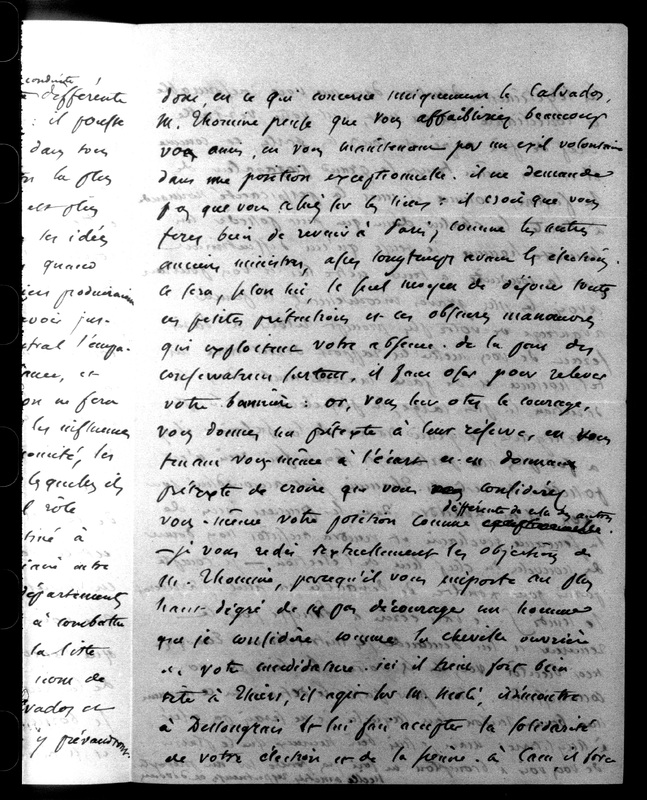 conduite
différente
: il pousse
dans tous
la plus
est plus
les idées
quand
produiraient
avoir jus-
central l'empa-
et
on ne fera
les influences
les
lesquelles ils
rôle
destiné à
autre
départements
à combattre
la liste
nom de
Calvados et
y prévaudront.
donc, en ce qui concerne uniquement le Calvados,
M. Thomine pense que vous affaibliriez beaucoup
vos amis, en vous maintenant par un exil volontaire
dans une position exceptionnelle. il ne demande
pas que vous alliez sur les lieux : il croit que vous
ferez bien de revenir à Paris, comme les autres
anciens ministres, assez longtemps avant les élections.
ce sera, selon lui le seul moyen de déjouer toutes
ces petites prétentions et ces obscures manœuvres
qui exploitent votre absence. de la part des
conservateurs surtout, il faut oser pour relever
votre bannière : or, vous leur ôtez le courage,
vous donnez un prétexte à leur réserve, en vous
tenant vous-même à l'écart et en donnant
prétexte de croire que vous considérez
différente de celle des autres
vous-même votre position comme exceptionnelle.
— je vous redis textuellement les objections de
M. Thomine, parcequ'il vous importe au plus
haut dégré de ne pas décourager un homme
que je considère comme la cheville ouvrière
de votre candidature. ici il tient fort bien
tête à Thiers, il agit sur M. Molé, remontre
à Deslongrais et lui fait accepter la solidarité
de votre élection et de la sienne. à Caen il sera